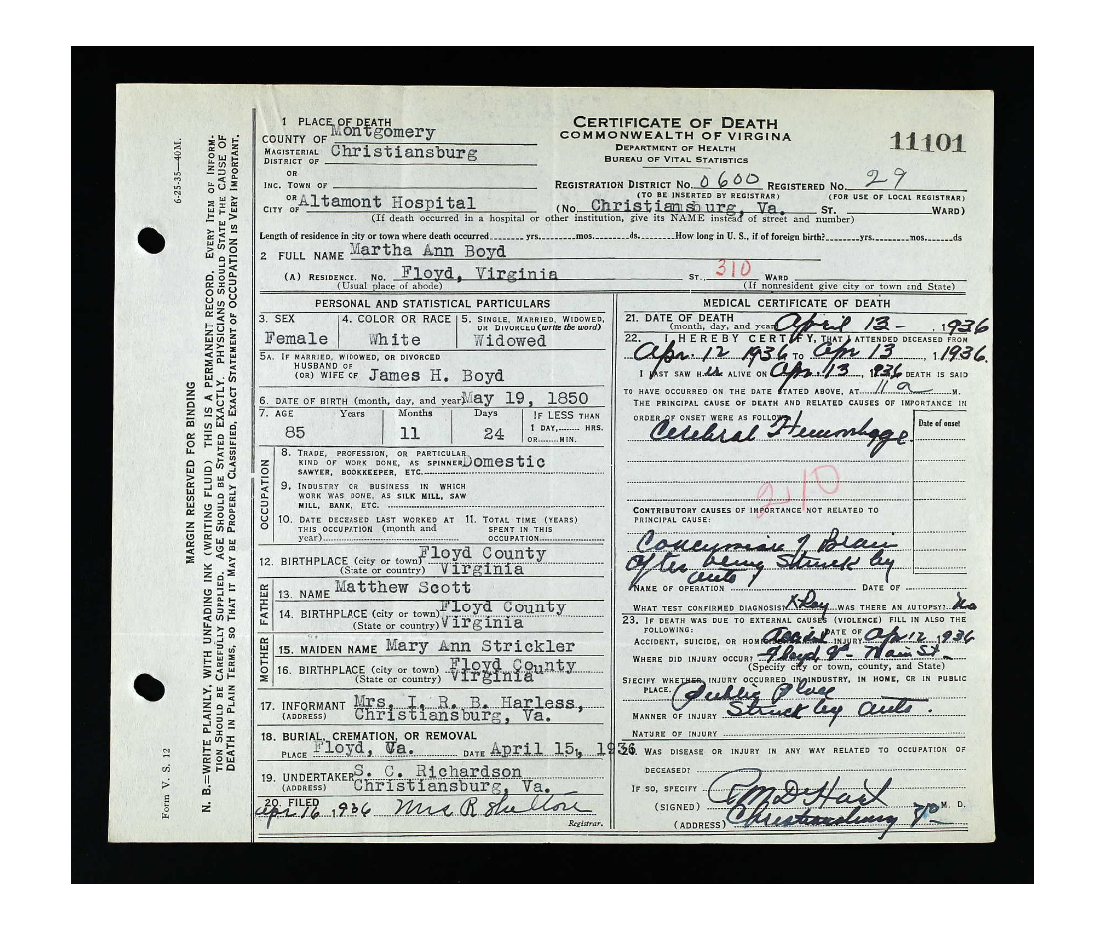 1 PLACE OF DEATH
COUNTY OF Montgomery
MAGISTERIAL DISTRICT OF Christiansburg
OR
INC. TOWN OF
OR
CITY OF Altamont Hospital
CERTIFICATE OF DEATH
COMMONWEALTH OF VIRGINA
DEPARTMENT OF HEALTH
BUREAU OF VITAL STATISTICS
11101
REGISTRATION DISTRICT NO. 0600 REGISTERED NO. 29
(TO BE INSERTED BY REGISTRAR) (FOR USE OF LOCAL REGISTRAR)
(No. Christiansburg, Va. ST. WARD)
(If death occurred in a hospital or other institution, give its NAME instead of street and number)
Length of residence in city or town where death occurred yrs. mos. ds. How long in U. S., if of foreign birth? yrs. mos. ds
2 FULL NAME Martha Ann Boyd
(A) RESIDENCE. No. Floyd, Virginia ST. 310 WARD
(Usual place of abode) (If nonresident give city or town and State)
PERSONAL AND STATISTICAL PARTICULARS
3. SEX 4. COLOR OR RACE 5. SINGLE, MARRIED, WIDOWED,
OR DIVORCED (write the word)
Female White Widowed
5A. IF MARRIED, WIDOWED, OR DIVORCED
HUSBAND OF
(OR) WIFE OF James H. Boyd
6. DATE OF BIRTH (month, day, and year) May 19, 1850
7. AGE Years Months Days IF LESS THAN
85 11 24 1 DAY, HRS.
OR MIN.
OCCUPATION
8. TRADE, PROFESSION, OR PARTICULAR
KIND OF WORK DONE, AS SPINNER, Domestic
SAWYER, BOOKKEEPER, ETC.
9. INDUSTRY OR BUSINESS IN WHICH
WORK WAS DONE, AS SILK MILL, SAW
MILL, BANK, ETC.
10. DATE DECEASED LAST WORKED AT 11. TOTAL TIME (YEARS)
THIS OCCUPATION (month and SPENT IN THIS
year) OCCUPATION
12. BIRTHPLACE (city or town) Floyd County
(State or country) Virginia
FATHER
13. NAME Matthew Scott
14. BIRTHPLACE (city or town) Floyd County
(State or country) Virginia
MOTHER
15. MAIDEN NAME Mary Ann Strickler
16. BIRTHPLACE (city or town) Floyd County
(State or country) Virginia
17. INFORMANT Mrs. I. R. B. Harless,
(ADDRESS) Christiansburg, Va.
18. BURIAL, CREMATION, OR REMOVAL
PLACE Floyd, Va. DATE April 15, 1936
19. UNDERTAKER S. C. Richardson
(ADDRESS) Christiansburg, Va.
20. FILED
Apr 16, 1936 Mrs R Shelton
Registrar.
MEDICAL CERTIFICATE OF DEATH
21. DATE OF DEATH
(month, day, and year) April 13 - , 1936
22. I HEREBY CERTIFY, THAT I ATTENDED DECEASED FROM
Apr. 12 1936 TO Apr 13, 1936.
I LAST SAW HER ALIVE ON Apr. 13, 1936 DEATH IS SAID
TO HAVE OCCURRED ON THE DATE STATED ABOVE, AT 11 a M.
THE PRINCIPAL CAUSE OF DEATH AND RELATED CAUSES OF IMPORTANCE IN
ORDER OF ONSET WERE AS FOLLOWS: Date of onset
Cerebral Hemorrhage
210
CONTRIBUTORY CAUSES OF IMPORTANCE NOT RELATED TO
PRINCIPAL CAUSE:
Concussion of Brain
after being struck by
auto
NAME OF OPERATION DATE OF
WHAT TEST CONFIRMED DIAGNOSIS? X Ray WAS THERE AN AUTOPSY? No
23. IF DEATH WAS DUE TO EXTERNAL CAUSES (VIOLENCE) FILL IN ALSO THE
FOLLOWING:
ACCIDENT, SUICIDE, OR HOMICIDE DATE OF INJURY Apr 12, 1936
WHERE DID INJURY OCCUR? Floyd, Va - Main St.
(Specify city or town, county, and State)
SPECIFY WHETHER INJURY OCCURRED IN INDUSTRY, IN HOME, OR IN PUBLIC
PLACE. Public Place
MANNER OF INJURY Struck by auto.
NATURE OF INJURY
WAS DISEASE OR INJURY IN ANY WAY RELATED TO OCCUPATION OF
DECEASED?
IF SO, SPECIFY
(SIGNED) M. D.
(ADDRESS) Christiansburg Va
MARGIN RESERVED FOR BINDING
N. B.—WRITE PLAINLY, WITH UNFADING INK (WRITING FLUID). THIS IS A PERMANENT RECORD. EVERY ITEM OF INFORM-
TION SHOULD BE CAREFULLY SUPPLIED. AGE SHOULD BE STATED EXACTLY. PHYSICIANS SHOULD STATE THE CAUSE OF
DEATH IN PLAIN TERMS, SO THAT IT MAY BE PROPERLY CLASSIFIED. EXACT STATEMENT OF OCCUPATION IS VERY IMPORTANT.
Form V. S. 12
6-25-35—40M.